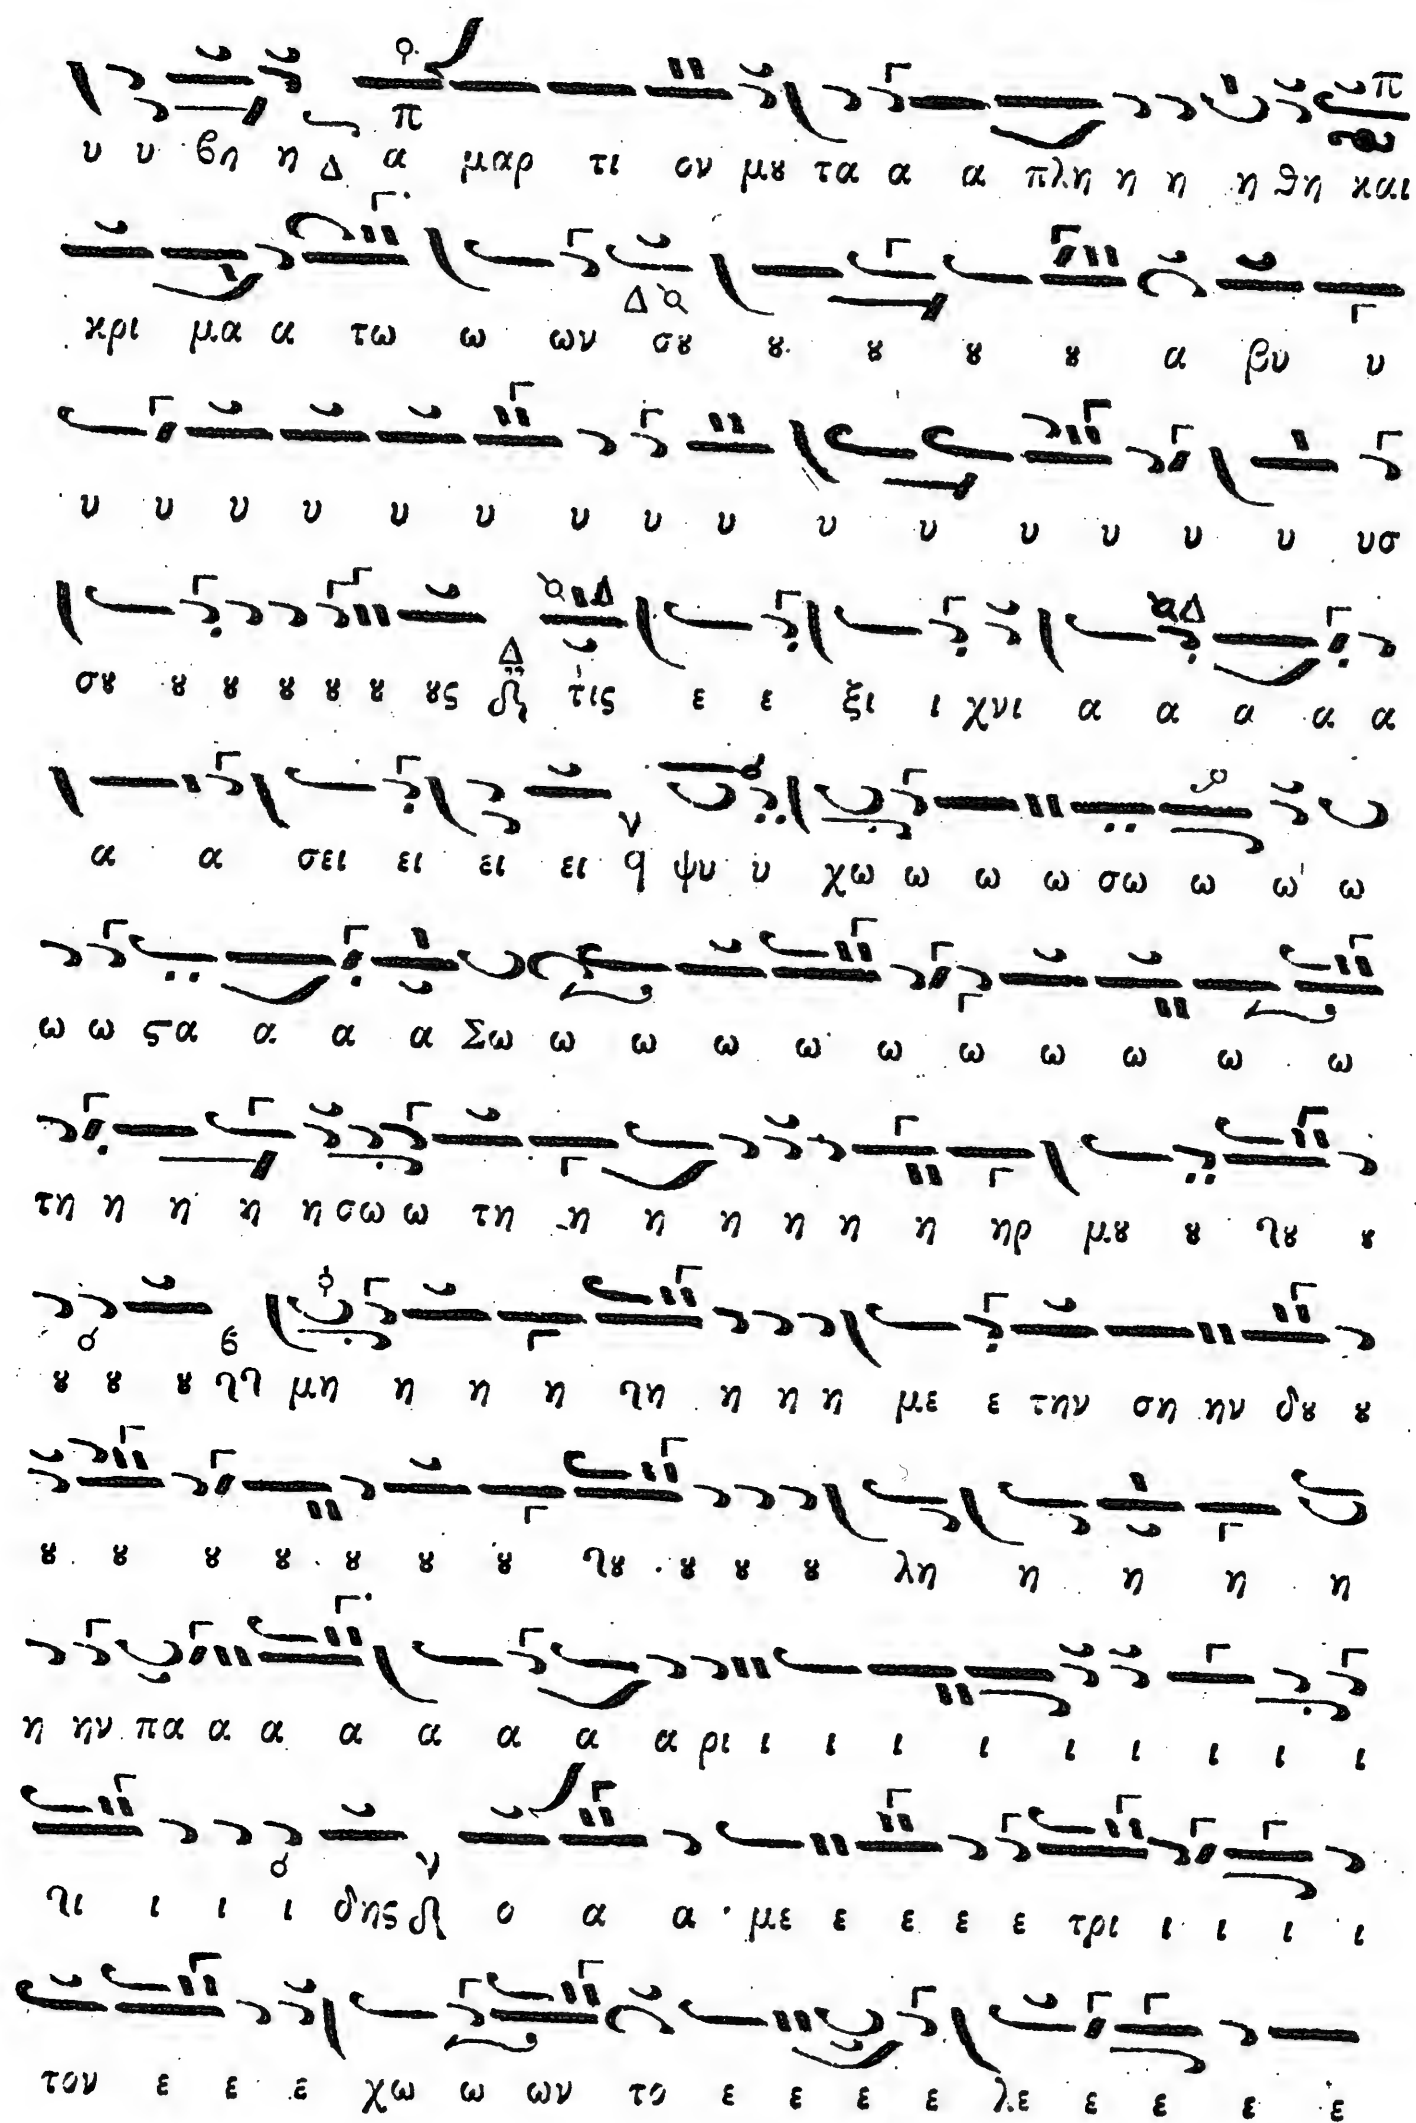 υ υ βη η Δ α μαρ τι ον μȣ τα α α πλη η η η θη και
κρι μα α τω ω ων σȣ ȣ ȣ ȣ ȣ α βυ υ
υ υ υ υ υ υ υ υ υ υ υ υ υ υ υ υσ
σȣ ȣ ȣ ȣ ȣ ȣ ȣς τις ε ε ξι ι χνι α α α α α
α α σει ει ει ει ψυ υ χω ω ω ω σω ω ω ω
ω ω ϛα α α α Σω ω ω ω ω ω ω ω ω ω ω
τη η η η η σω ω τη η η η η η η ηρ μȣ ȣ ȣ ȣ
ȣ ȣ ȣ μη η η η η η η η με ε την ση ην δȣ ȣ
ȣ ȣ ȣ ȣ ȣ ȣ ȣ ȣ ȣ ȣ ȣ λη η η η η
η ην πα α α α α α α α ρι ι ι ι ι ι ι ι ι ι
ι ι ι ι δης ο α α με ε ε ε ε τρι ι ι ι ι
τον ε ε ε χω ω ων το ε ε ε ε λε ε ε ε ε